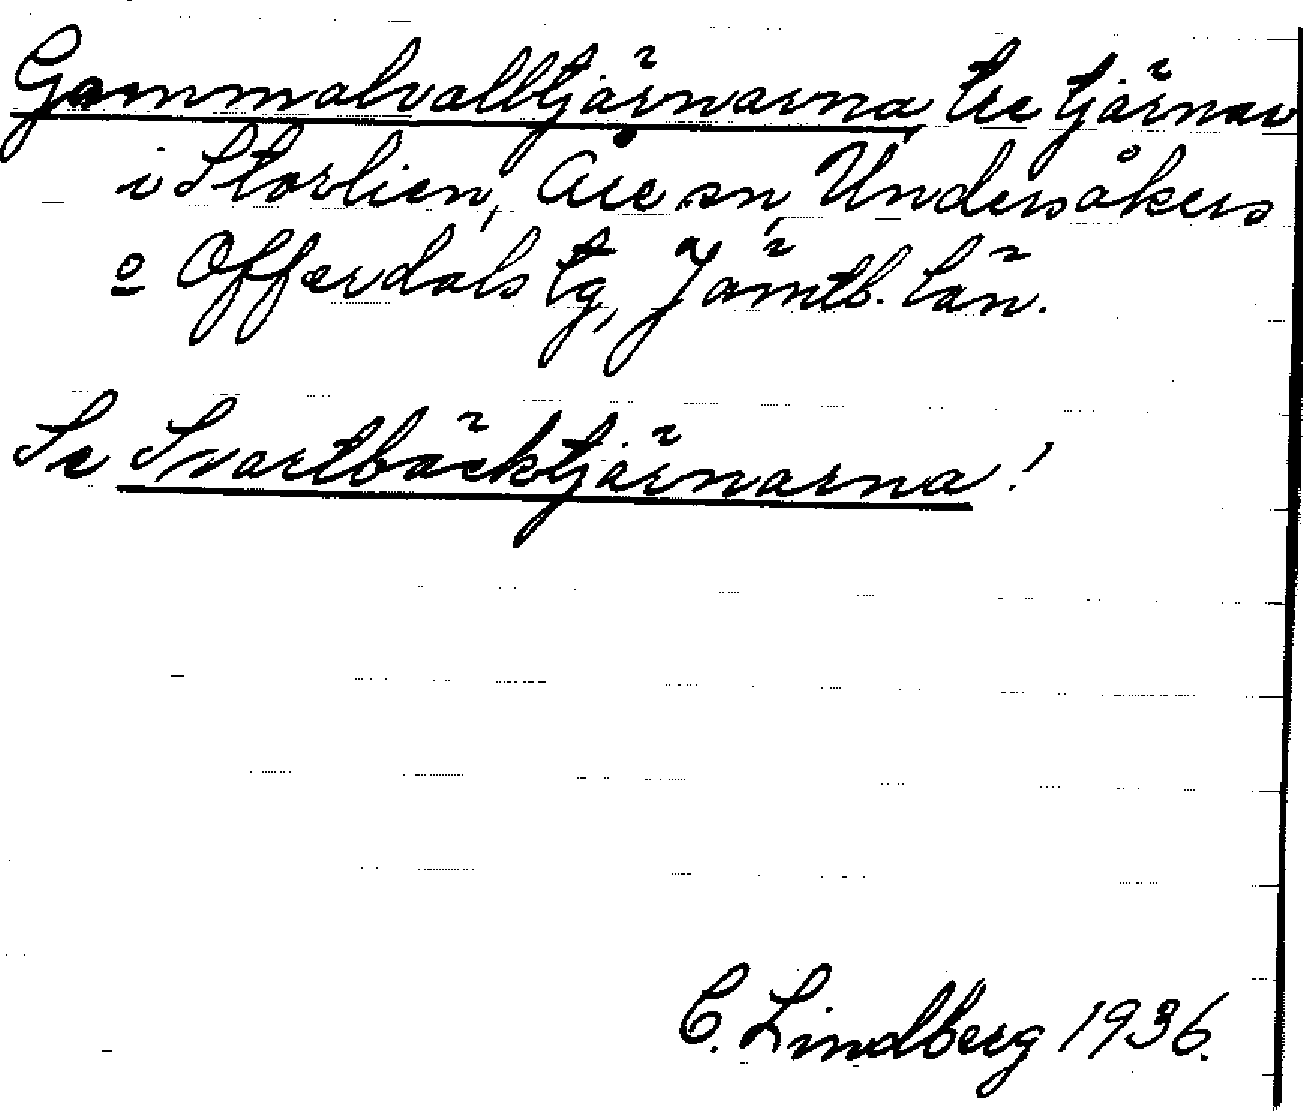 Gammalvalltjärnarna tre tjärnar
i Storlien, Åre sn, Undersåkers
o Offerdals tg, Jämtl. län.
Se Svartbäcktjärnarna!
C. Lindberg 1936.